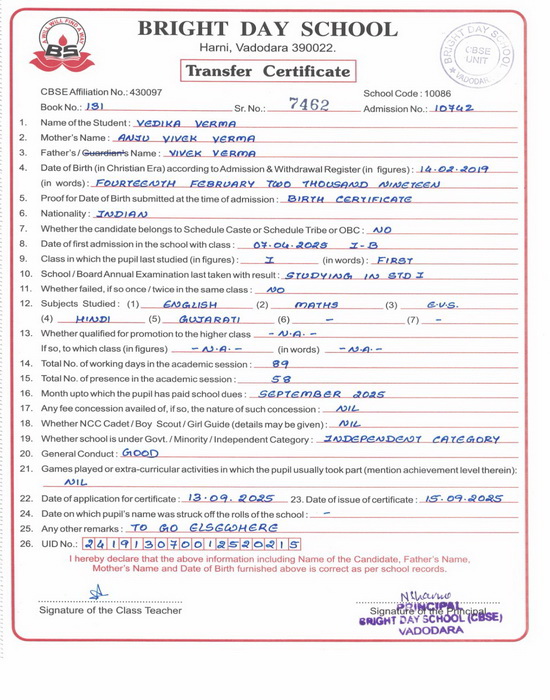 A WILL WILL FIND A WAY
BS
BRIGHT DAY SCHOOL
Harni, Vadodara 390022.
Transfer Certificate
BRIGHT DAY SCHOOL
CBSE
UNIT
VADODARA
CBSE Affiliation No.: 430097
School Code : 10086
Book No.: 131 Sr. No.: 7462 Admission No.: 10742
1. Name of the Student : VEDIKA VERMA
2. Mother's Name : ANJU VIVEK VERMA
3. Father's / Guardian's Name : VIVEK VERMA
4. Date of Birth (in Christian Era) according to Admission & Withdrawal Register (in figures) : 14.02.2019
(in words) : FOURTEENTH FEBRUARY TWO THOUSAND NINETEEN
5. Proof for Date of Birth submitted at the time of admission : BIRTH CERTIFICATE
6. Nationality : INDIAN
7. Whether the candidate belongs to Schedule Caste or Schedule Tribe or OBC : NO
8. Date of first admission in the school with class : 07.04.2025 I-B
9. Class in which the pupil last studied (in figures) : I (in words) : FIRST
10. School / Board Annual Examination last taken with result : STUDYING IN STD I
11. Whether failed, if so once / twice in the same class : NO
12. Subjects Studied : (1) ENGLISH (2) MATHS (3) E.V.S.
(4) HINDI (5) GUJARATI (6) - (7) -
13. Whether qualified for promotion to the higher class - N.A. -
If so, to which class (in figures) - N.A. - (in words) - N.A. -
14. Total No. of working days in the academic session : 89
15. Total No. of presence in the academic session : 58
16. Month upto which the pupil has paid school dues : SEPTEMBER 2025
17. Any fee concession availed of, if so, the nature of such concession : NIL
18. Whether NCC Cadet / Boy Scout / Girl Guide (details may be given) : NIL
19. Whether school is under Govt. / Minority / Independent Category : INDEPENDENT CATEGORY
20. General Conduct : GOOD
21. Games played or extra-curricular activities in which the pupil usually took part (mention achievement level therein):
NIL
22. Date of application for certificate : 13.09.2025 23. Date of issue of certificate : 15.09.2025
24. Date on which pupil's name was struck off the rolls of the school : -
25. Any other remarks : TO GO ELSEWHERE
26. UID No.: 241913070012520215
I hereby declare that the above information including Name of the Candidate, Father's Name,
Mother's Name and Date of Birth furnished above is correct as per school records.
Signature of the Class Teacher
Signature of the Principal
PRINCIPAL
BRIGHT DAY SCHOOL (CBSE)
VADODARA